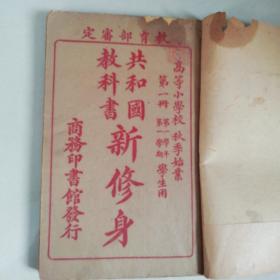 教育部審定
高等小學校 秋季始業
第一冊 第一學年 第一學期 學生用
共和國教科書
新修身
商務印書館發行